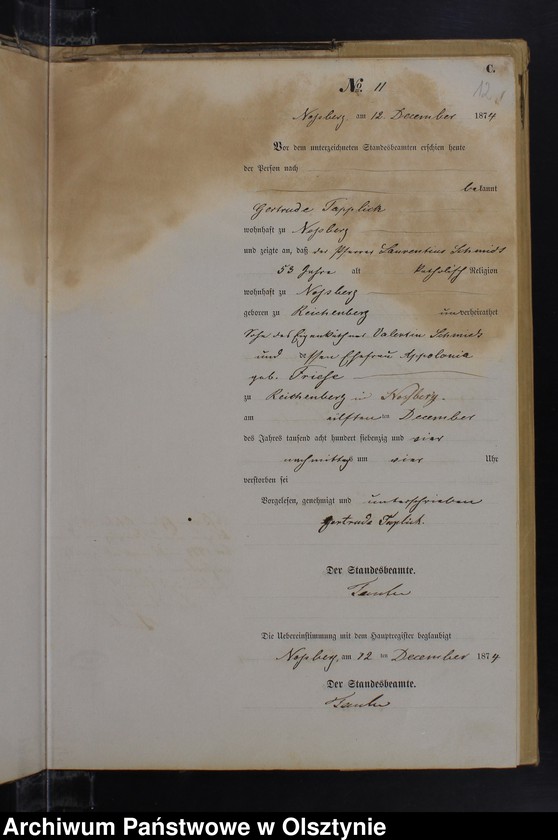 C.
12
No. 11
Noßberg am 12. December 1874
Vor dem unterzeichneten Standesbeamten erschien heute
der Person nach
bekannt
Gertrude Tapplick
wohnhaft zu Noßberg
und zeigte an, daß der Pfarrer Laurentius Schmidt
53 Jahre alt katholisch Religion
wohnhaft zu Noßberg
geboren zu Reichenberg unverheirathet
Sohn des Eigenkäthner Valentin Schmidt
und dessen Ehefrau Appolonia
geb. Friese
zu Reichenberg in Noßberg.
am eilften December
des Jahres tausend acht hundert siebenzig und vier
nachmittags um vier Uhr
verstorben sei
Vorgelesen, genehmigt und unterschrieben
Gertrude Tapplick.
Der Standesbeamte.
Die Uebereinstimmung mit dem Hauptregister beglaubigt
Noßberg, am 12 ten December 1874
Der Standesbeamte.
Archiwum Państwowe w Olsztynie